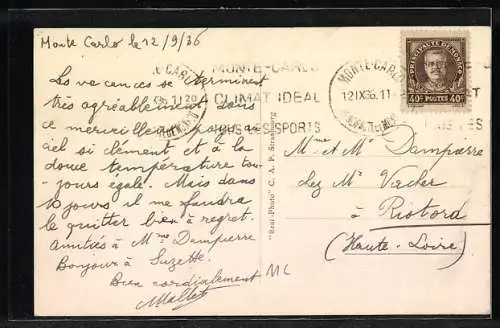 Monte Carlo le 12/9/36
Les vacances se terminent
très agréablement dans
ce merveilleux pays au
ciel si clément et à la
douce température tou-
jours égale. Mais dans
10 jours il me faudra
le quitter bien à regret.
Amitiés à Mme Dampierre
Bonjour à Suzette.
Bien cordialement
Mallet
MC
"Real-Photo" C. A. P. Strasbourg
MONTE-CARLO
CLIMAT IDEAL
TOUS LES SPORTS
MONTE-CARLO
12 IX 36 11
PRINCIPAUTE DE MONACO
40c POSTES 40c
Mme et Mr Dampierre
chez Mr Vacher
à Riotord
(Haute-Loire)